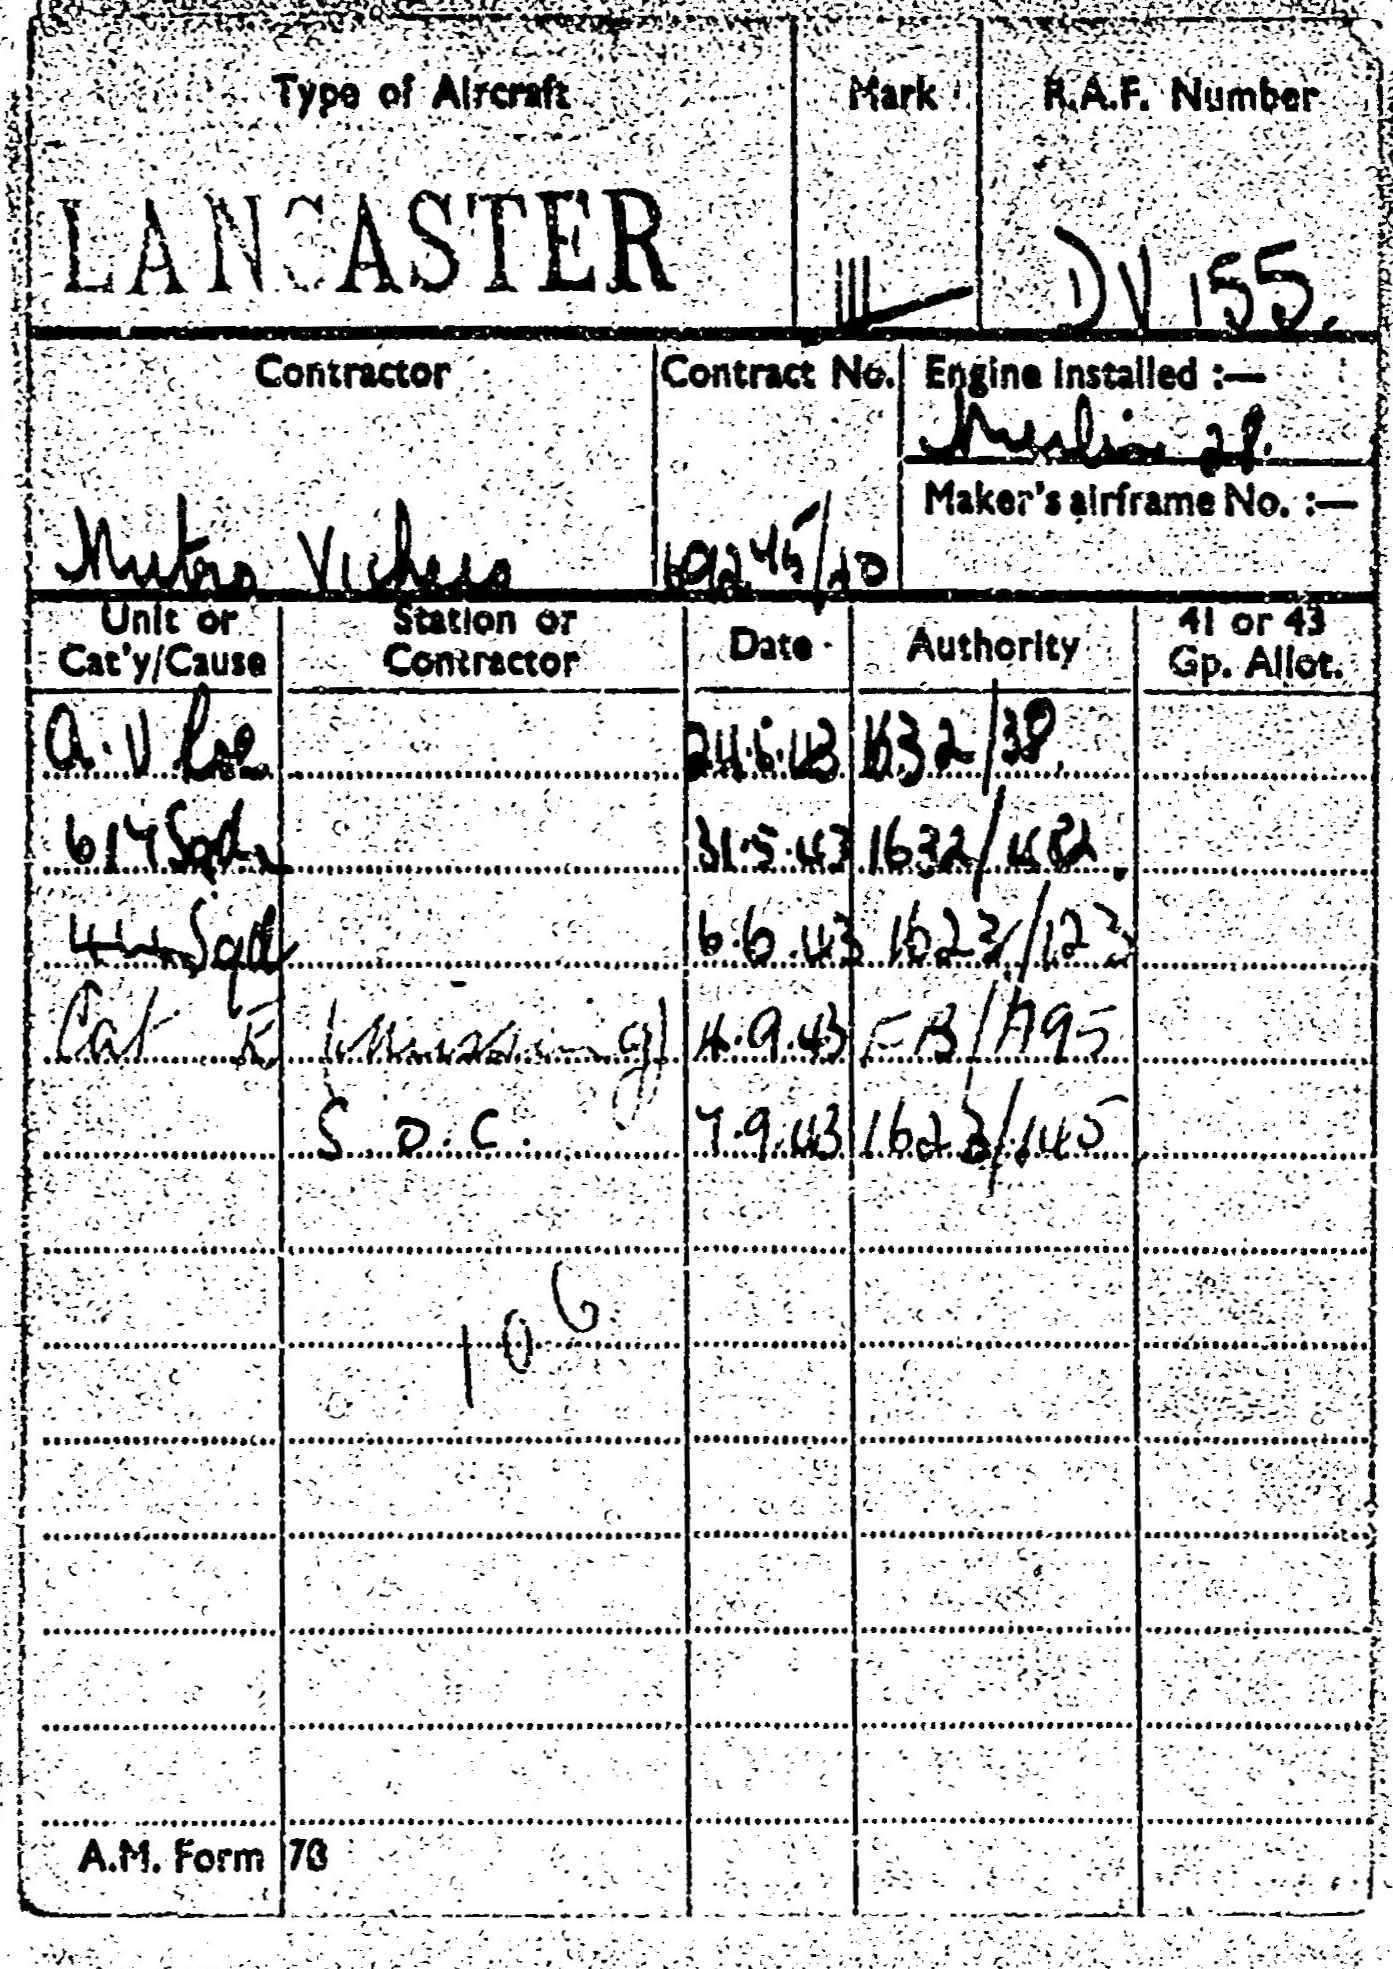 Type of Aircraft Mark R.A.F. Number
LANCASTER III DV 155.
Contractor Contract No. Engine installed :—
Merlin 28.
Maker's airframe No. :—
Metro Vickers 69245/40
Unit or Cat'y/Cause Station or Contractor Date Authority 41 or 43 Gp. Allot.
A.V Roe 24.5.43 1632/38.
617 Sqdn 31.5.43 1632/482
44 Sqd 6.6.43 1623/123
Cat E (Missing) 4.9.43 FB/A95
S.O.C. 7.9.43 1623/145
106
A.M. Form 78